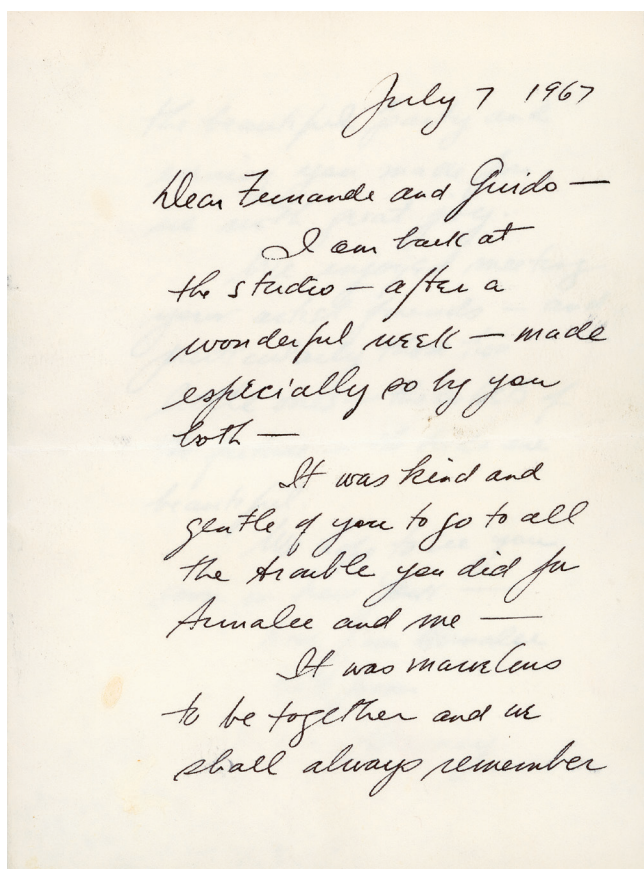 July 7 1967
Dear Fernande and Guido —
I am back at
the studio — after a
wonderful week — made
especially so by you
both —
It was kind and
gentle of you to go to all
the trouble you did for
Annalee and me —
It was marvelous
to be together and we
shall always remember